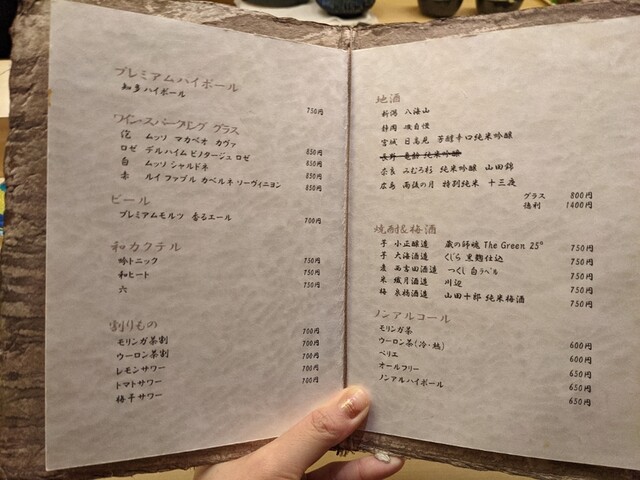 プレミアムハイボール
知多ハイボール 750円
ワイン・スパークリング グラス
泡 ムッソ マカベオ カヴァ 850円
ロゼ デルハイム ピノタージュ ロゼ 850円
白 ムッソ シャルドネ 850円
赤 ルイ ファブル カベルネ リーヴィニヨン 850円
ビール
プレミアムモルツ 香るエール 700円
和カクテル
吟トニック 750円
和ヒート 750円
六 750円
割りもの
モリンガ茶割 700円
ウーロン茶割 700円
レモンサワー 700円
トマトサワー 700円
梅干サワー 700円
地酒
新潟 八海山
静岡 磯自慢
宮城 日高見 芳醇辛口純米吟醸
長野 亀齢 純米吟醸
奈良 みむろ杉 純米吟醸 山田錦
広島 雨後の月 特別純米 十三夜
グラス 800円
徳利 1400円
焼酎&梅酒
芋 小正醸造 蔵の師魂 The Green 25° 750円
芋 大海酒造 くじら 黒麹仕込 750円
麦 西吉田酒造 つくし 白ラベル 750円
米 繊月酒造 川辺 750円
梅 泉橋酒造 山田十郎 純米梅酒 750円
ノンアルコール
モリンガ茶 600円
ウーロン茶(冷・熱) 600円
ペリエ 650円
オールフリー 650円
ノンアルハイボール 650円